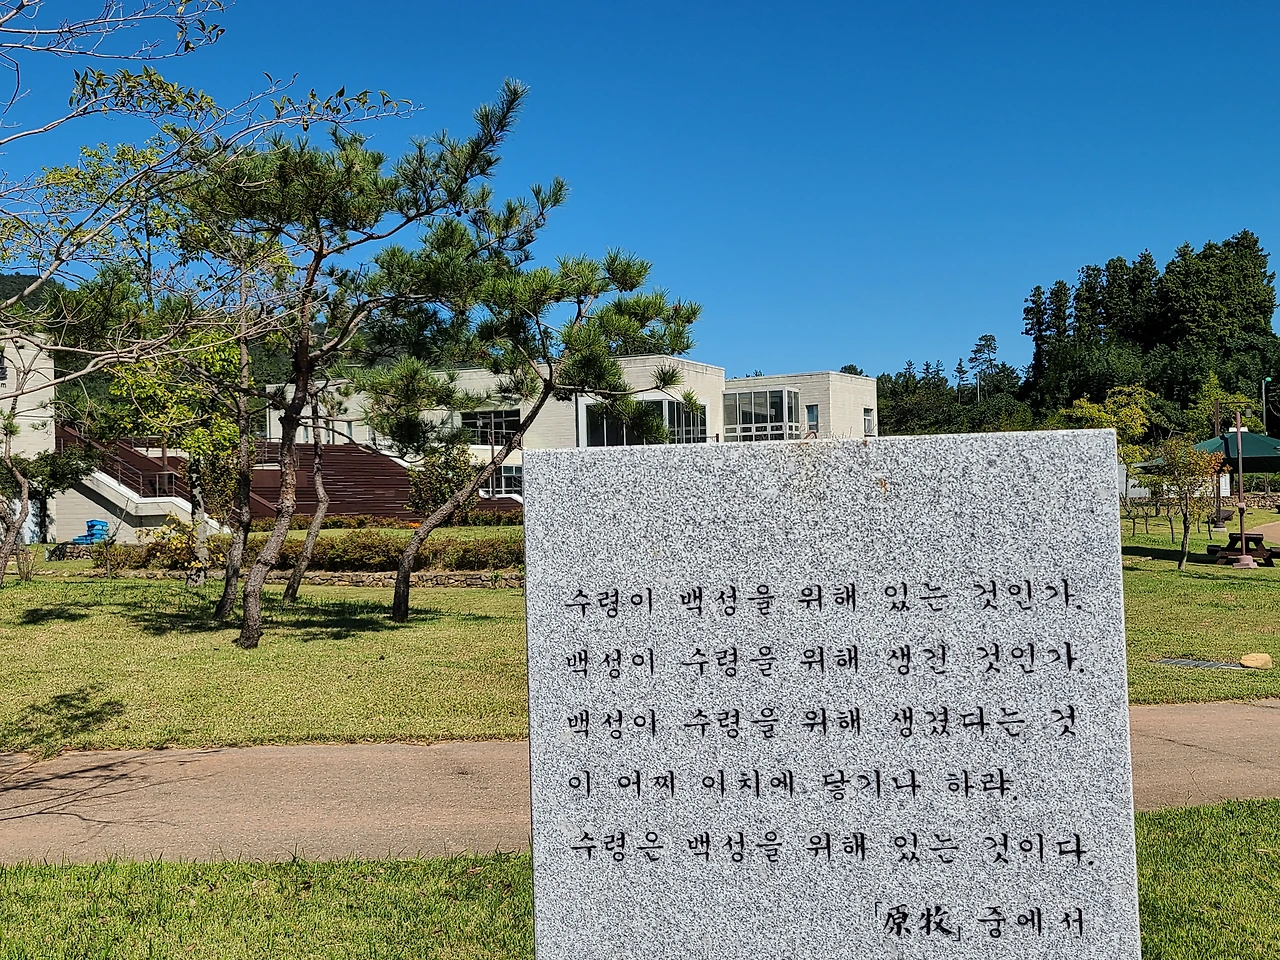 수령이 백성을 위해 있는 것인가.
백성이 수령을 위해 생긴 것인가.
백성이 수령을 위해 생겼다는 것
이 어찌 이치에 닿기나 하랴.
수령은 백성을 위해 있는 것이다.
「原牧」 중에서